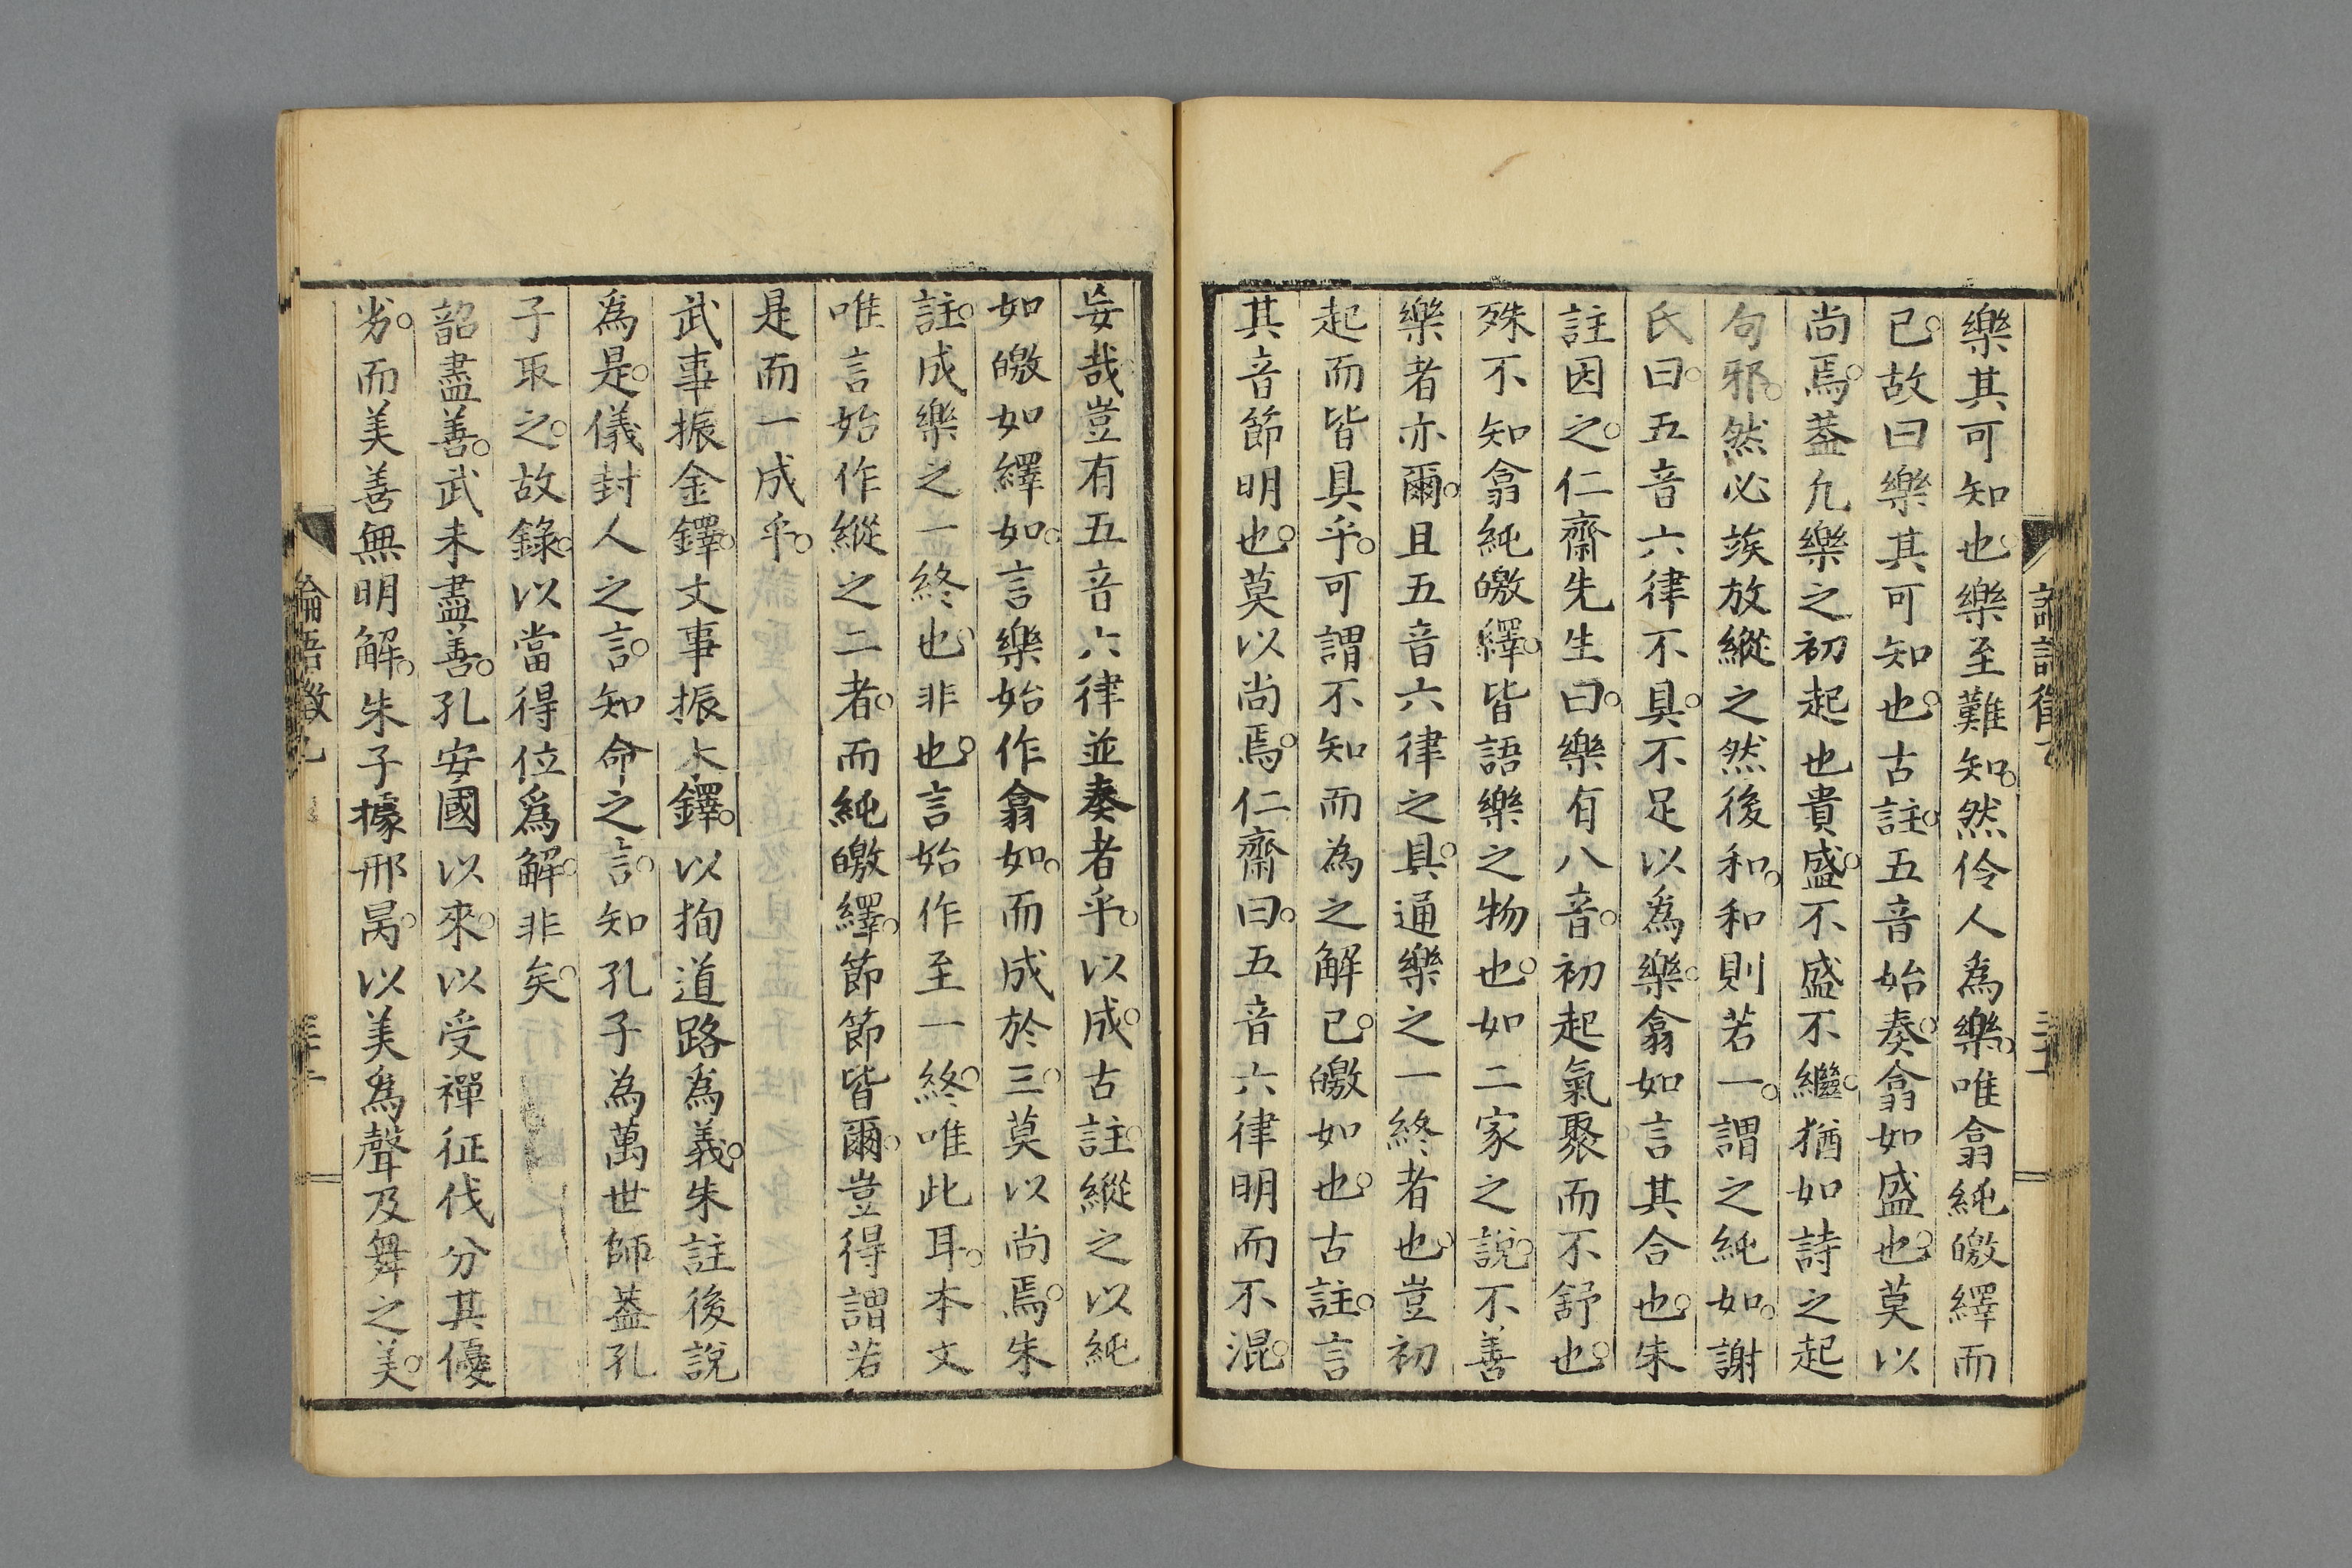 樂其可知也樂至難知。然伶人爲樂。唯翕純皦繹而
已。故曰樂其可知也。古註。五音始奏。翕如盛也。莫以
尚焉。蓋凡樂之初起也貴盛。不盛不繼。猶如詩之起
句邪。然必竢放縱之然後和。和則若一。謂之純如。謝
氏曰。五音六律不具。不足以爲樂。翕如言其合也。朱
註因之。仁齋先生曰。樂有八音。初起氣聚而不舒也。
殊不知翕純皦繹。皆語樂之物也。如二家之說。不善
樂者亦爾。且五音六律之具。通樂之一終者也。豈初
起而皆具乎。可謂不知而為之解已。皦如也。古註。言
其音節明也。莫以尚焉。仁齋曰。五音六律明而不混。
妄哉豈有五音六律並奏者乎。以成。古註。縱之以純
如皦如繹如。言樂始作翕如。而成於三。莫以尚焉。朱
註。成樂之一終也。非也。言始作至一終。唯此耳。本文
唯言始作縱之二者。而純皦繹。節節皆爾。豈得謂若
是而一成乎。
武事振金鐸。文事振木鐸。以徇道路爲義。朱註後說
為是。儀封人之言。知命之言。知孔子為萬世師。蓋孔
子取之。故錄。以當得位爲解。非矣。
韶盡善。武未盡善。孔安國以來。以受禪征伐分其優
劣。而美善無明解。朱子據邢昺。以美爲聲及舞之美。
論語徵